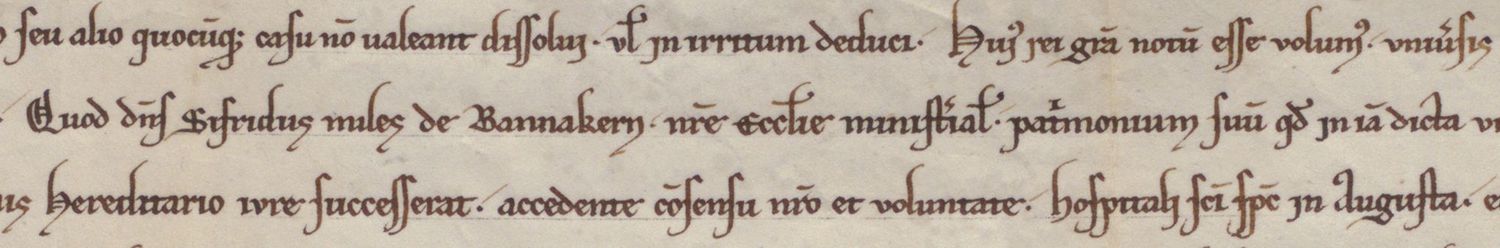 seu alio quocūq; casu nō ualeant dissolui. ul̄ in irritum deduci. Huiꝰ rei grā notū esse volumꝰ. vniu̾sis
Quod dn̄s Sifridus miles de Bannakern. nr̄e Eccl̄ie minist̾ial̄. pat̾monium suū qd̄ in iā dicta
Hereditario iure successerat. accedente cōsensu nr̄o et voluntate. hospitali sc̄i sp̄c in Augusta.